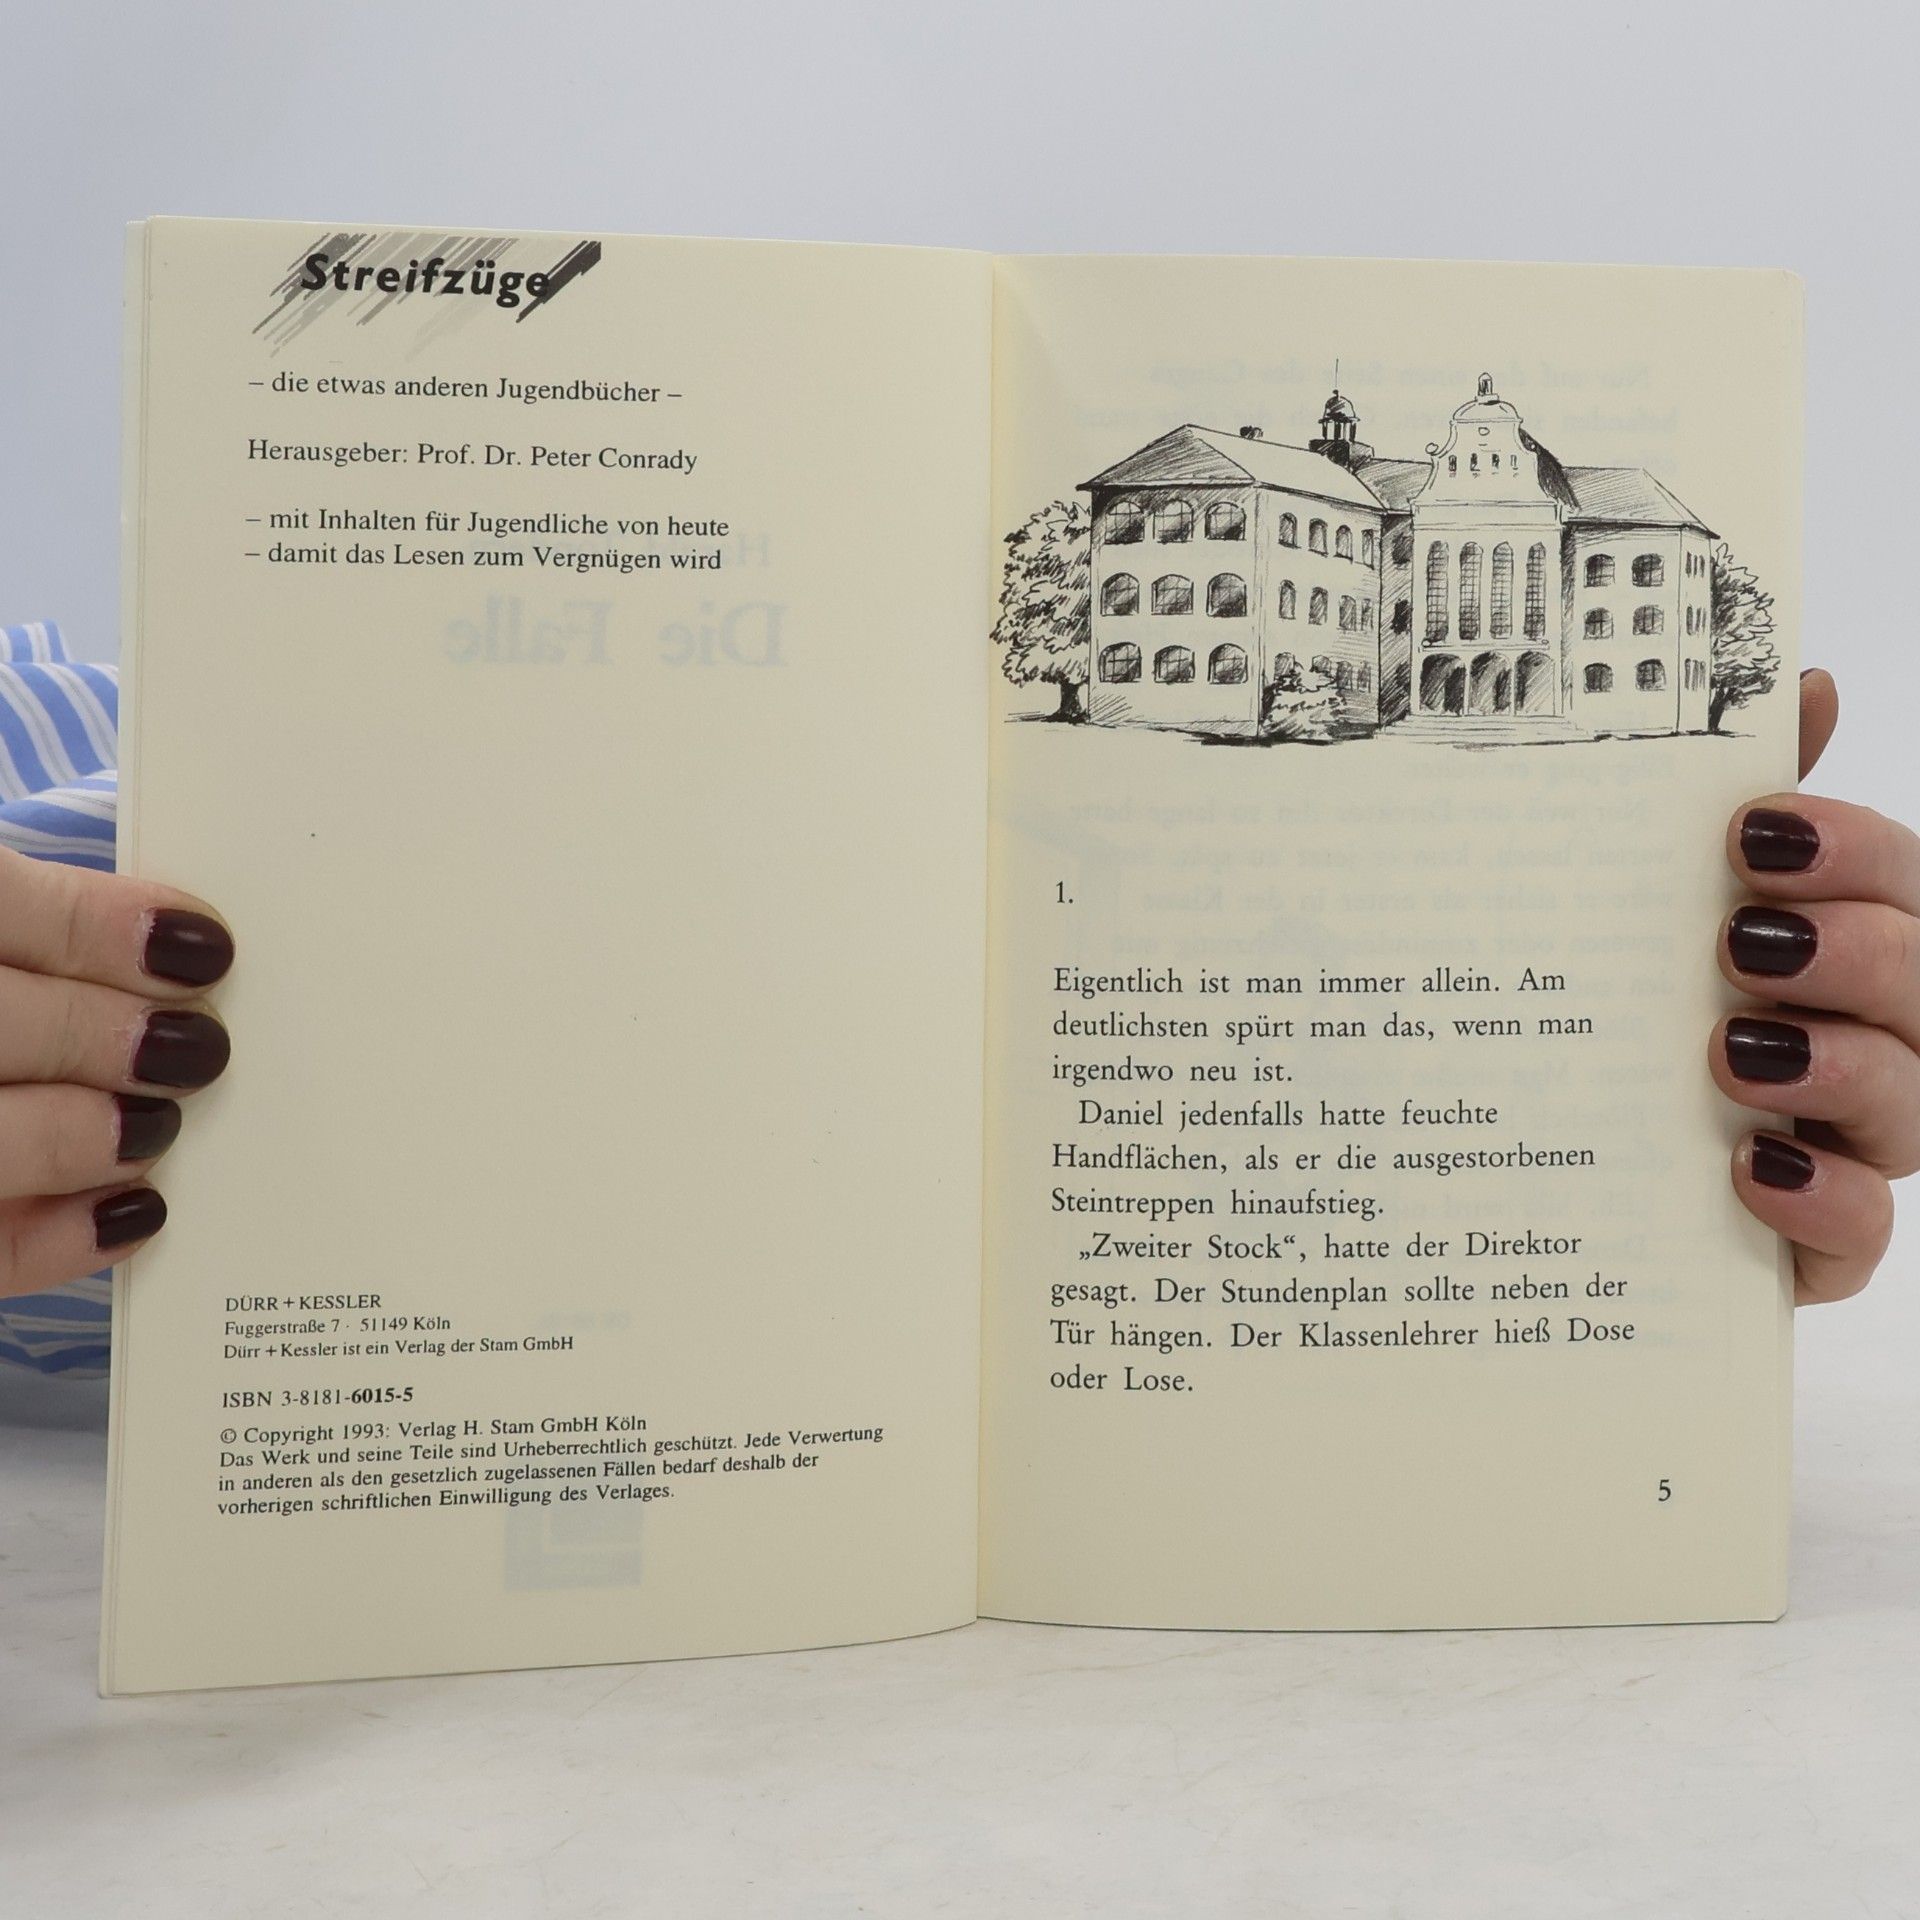 Streifzüge
– die etwas anderen Jugendbücher –
Herausgeber: Prof. Dr. Peter Conrady
– mit Inhalten für Jugendliche von heute
– damit das Lesen zum Vergnügen wird
Die Falle
DÜRR + KESSLER
Fuggerstraße 7 · 51149 Köln
Dürr + Kessler ist ein Verlag der Stam GmbH
ISBN 3-8181-6015-5
© Copyright 1993: Verlag H. Stam GmbH Köln
Das Werk und seine Teile sind Urheberrechtlich geschützt. Jede Verwertung
in anderen als den gesetzlich zugelassenen Fällen bedarf deshalb der
vorherigen schriftlichen Einwilligung des Verlages.
1.
Eigentlich ist man immer allein. Am
deutlichsten spürt man das, wenn man
irgendwo neu ist.
Daniel jedenfalls hatte feuchte
Handflächen, als er die ausgestorbenen
Steintreppen hinaufstieg.
„Zweiter Stock“, hatte der Direktor
gesagt. Der Stundenplan sollte neben der
Tür hängen. Der Klassenlehrer hieß Dose
oder Lose.
5